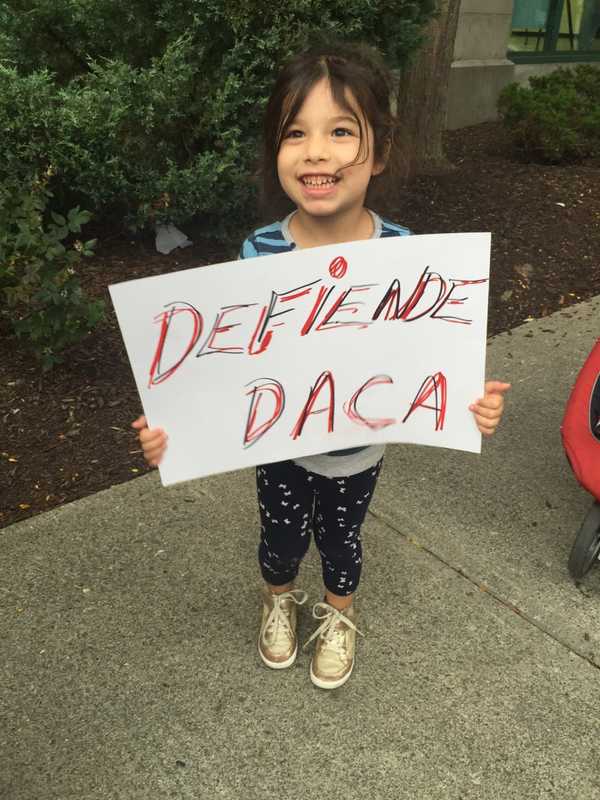 DEFIENDE
DACA